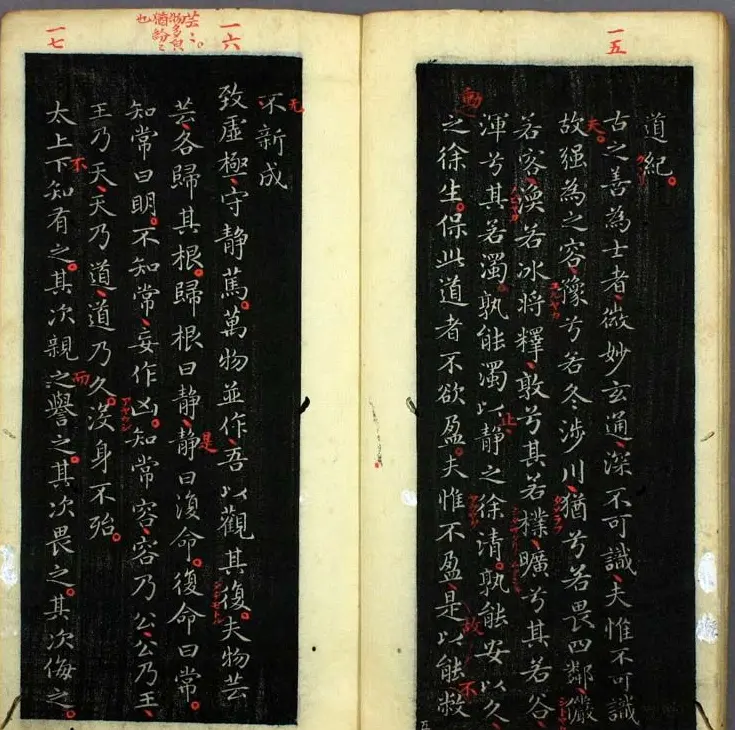 一五
道紀
古之善為士者、微妙玄通、深不可識、夫惟不可識
夫
故强為之容、豫兮若冬涉川、猶兮若畏四鄰、儼
ユルヤカ
タメラフ
若容、渙若冰将釋、敦兮其若樸、曠兮其若谷、
渾兮其若濁、孰能濁以静之徐清。孰能安以久、
止
動
之徐生。保此道者不欲盈。夫惟不盈、是以能敝
故
不
一六
芸〻。
物多皃
猶紛〻
也
无
不新成
致虛極、守静篤。萬物並作、吾以觀其復。夫物芸
芸、各歸其根。歸根曰静、静曰復命。復命曰常。
是
知常曰明。不知常、妄作凶。知常容、容乃公、公乃王、
アヤウシ
王乃天、天乃道、道乃久。沒身不殆。
一七
太上下知有之。其次親之譽之。其次畏之。其次侮之。
不
而